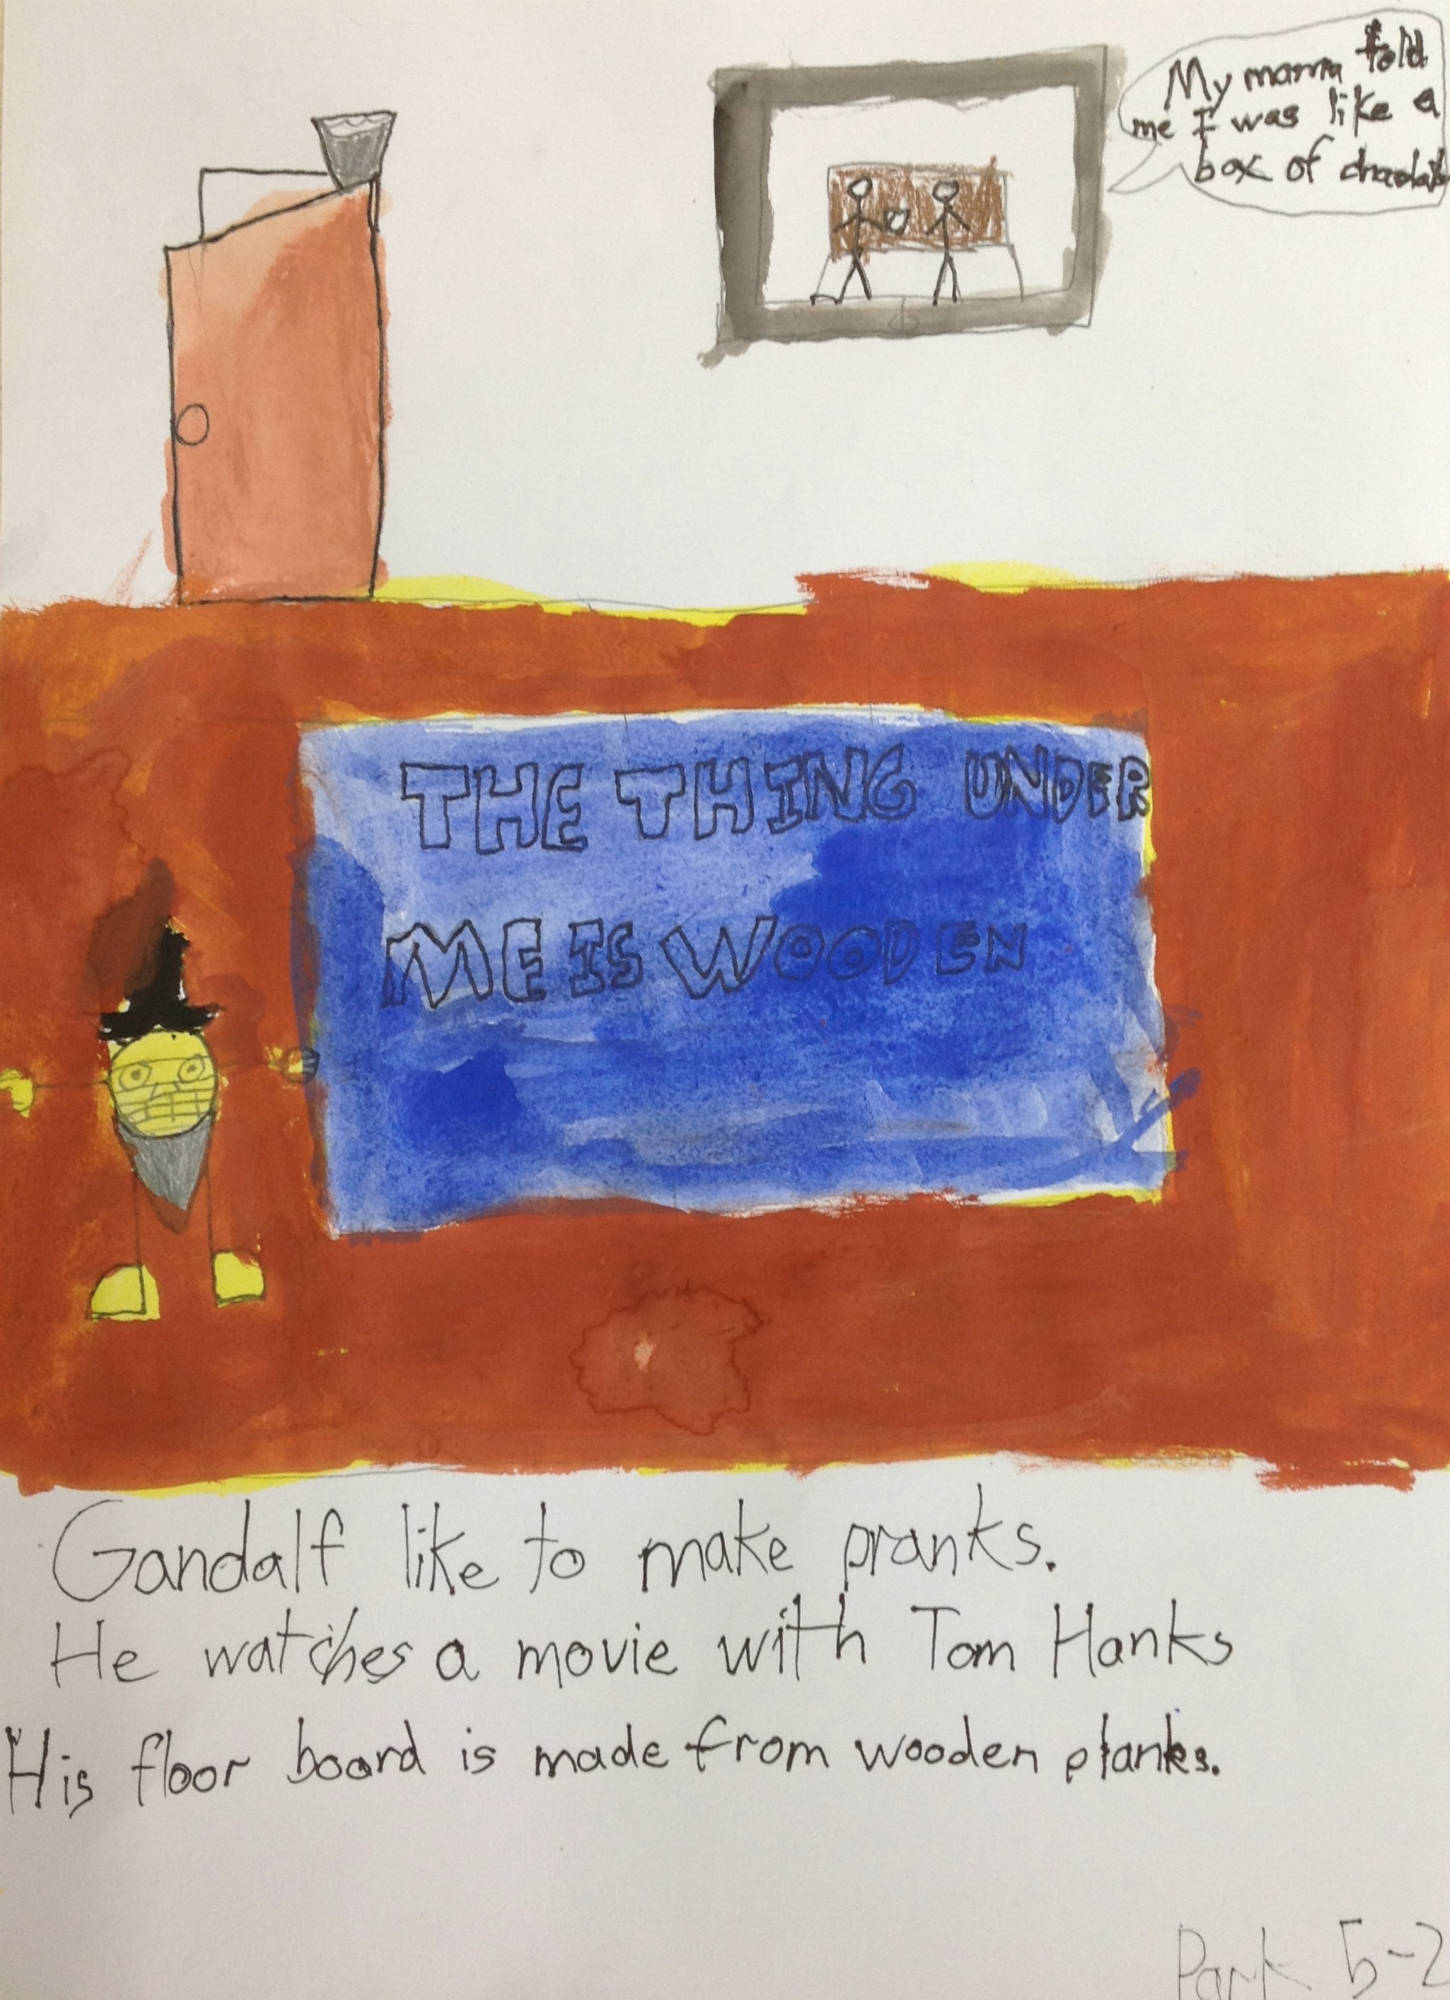 My mama told
me I was like a
box of chocolate
THE THING UNDER
ME IS WOODEN
Gandalf like to make pranks.
He watches a movie with Tom Hanks
His floor board is made from wooden planks.
Park 5-2